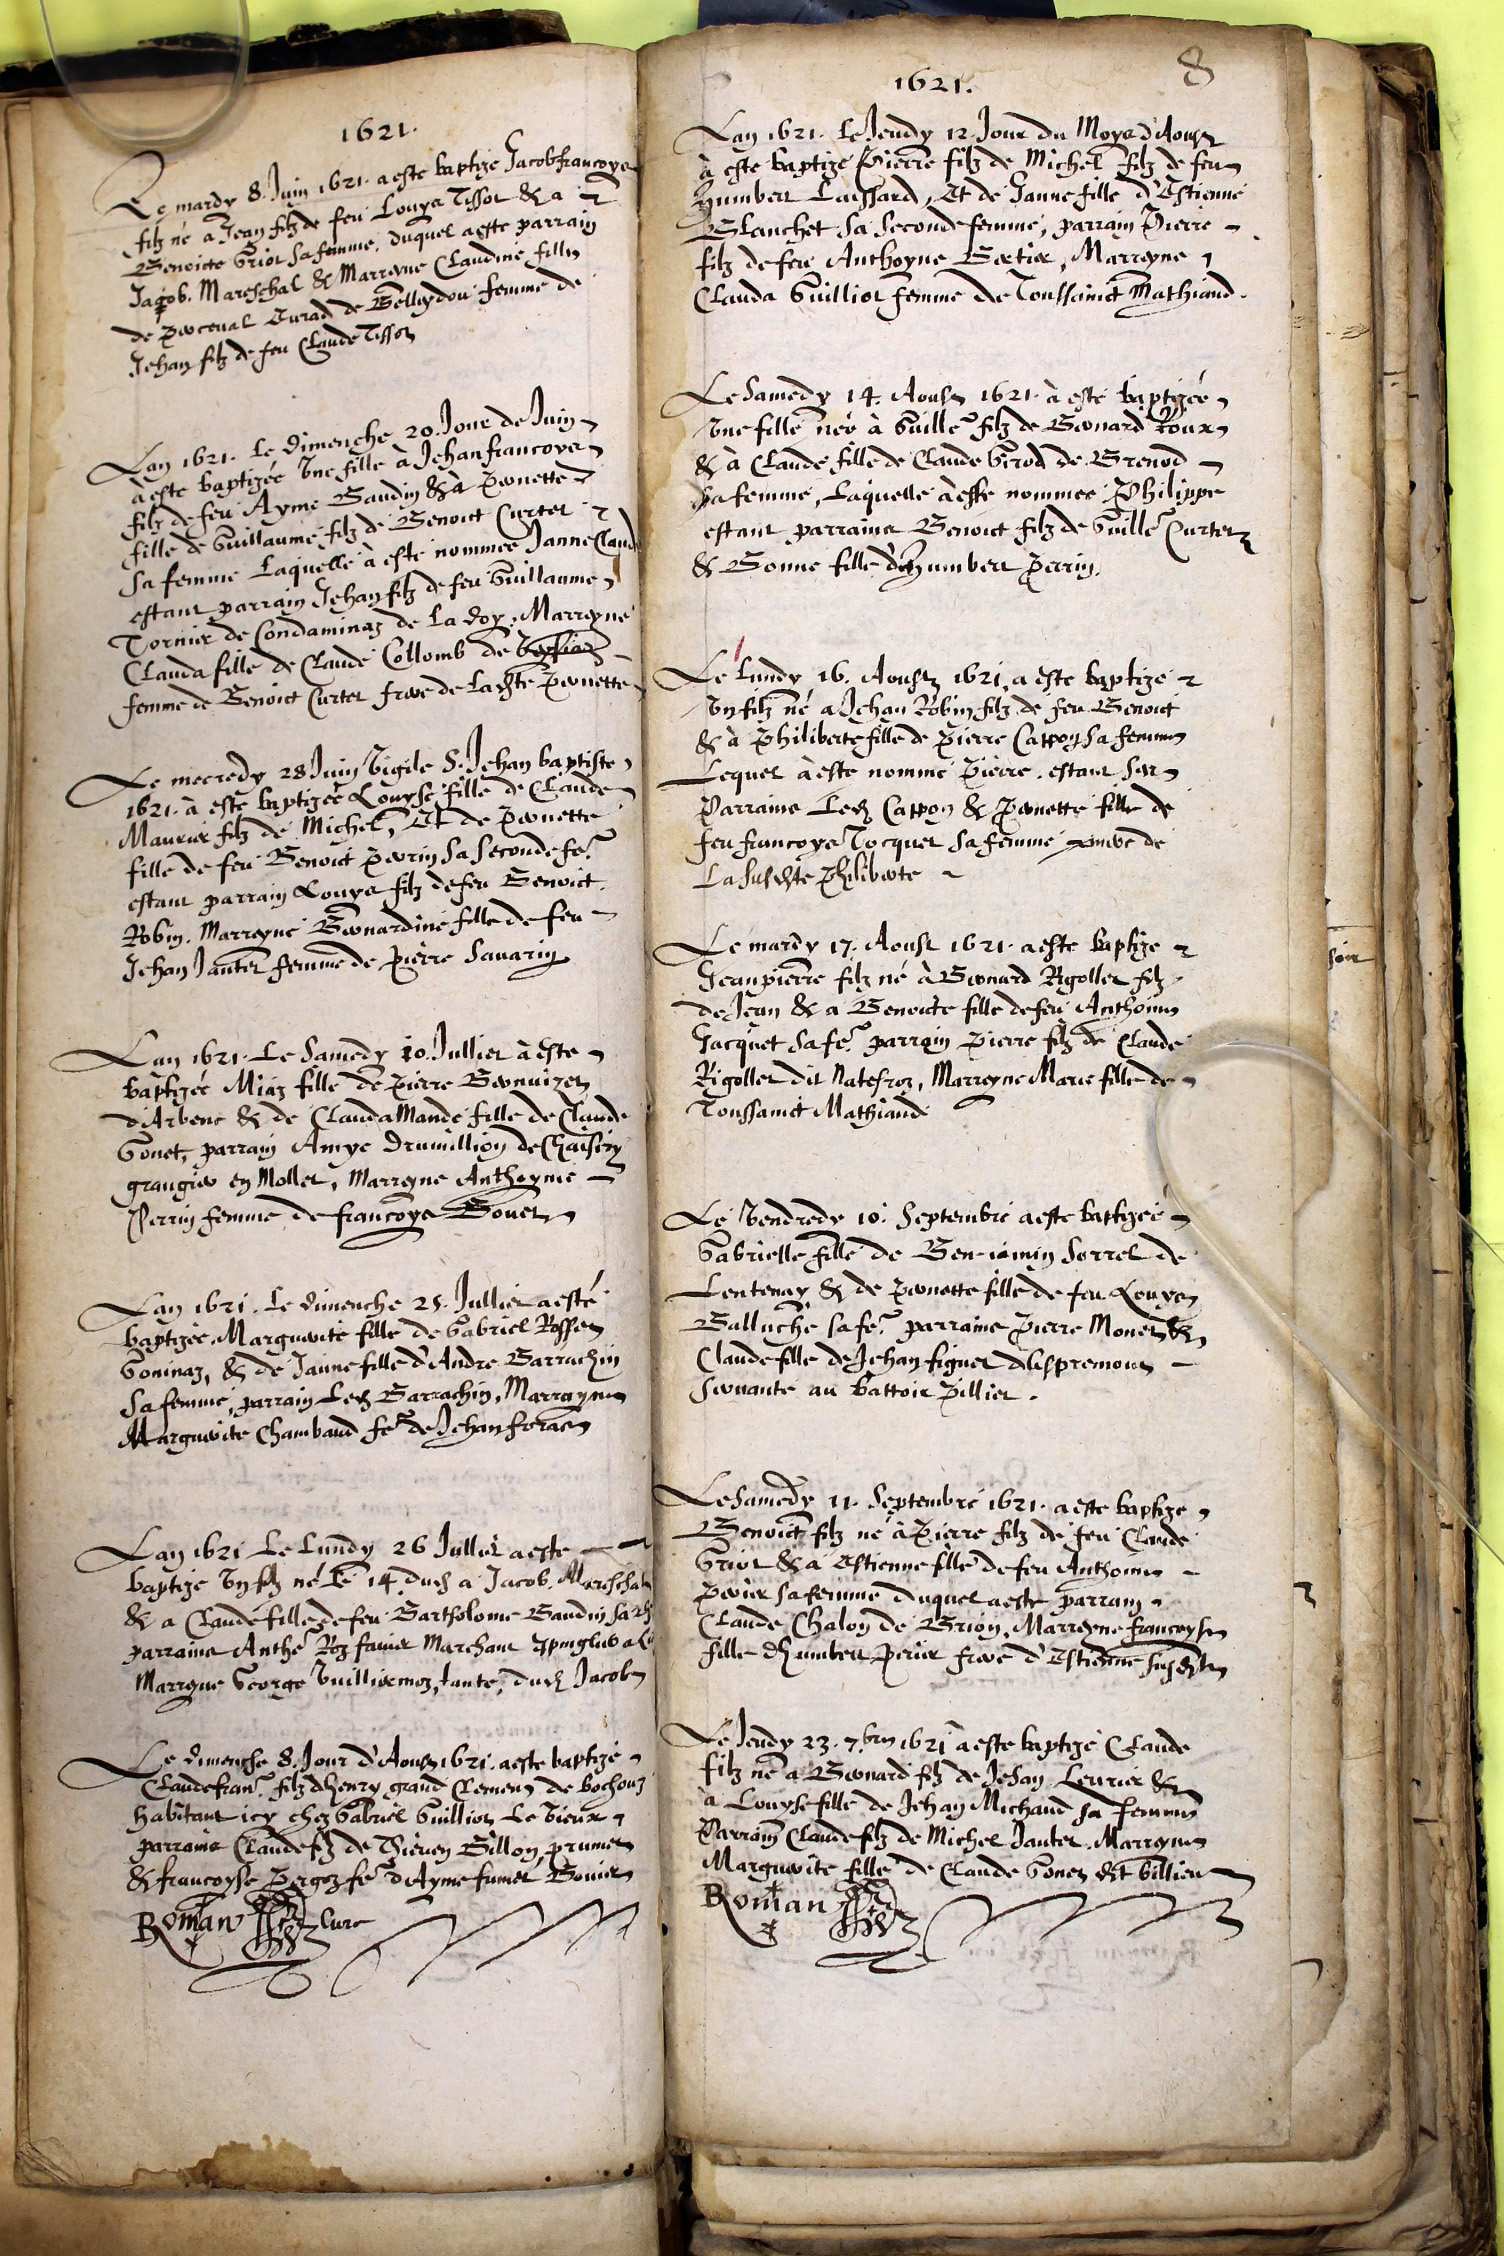 1621.
Le mardy 8. Juin 1621. a este baptize Jacobfrancoys
filz né a Jean filz de feu Louys Tissot & a
Benoicte Griot sa femme, duquel a este parrain
Jaqob. Mareschal & Marreyne Claudine fille
de Perceval Curad de Belleydou femme de
Jehan filz de feu Claude Tissot
Lan 1621. Le dimenche 20. Jour de Juin
à este baptizée Une fille à Jehanfrancoys
filz de feu Ayme Baudin & à Pernette
fille de Guillaume filz de Benoict Curtet
sa femme Laquelle à este nommée JanneClaude
estant parrain Jehan filz de feu Guillaume
Tornier de Condaminaz de La doy, Marreyne
Clauda fille de Claude Collomb de
femme de Benoict Curtet frere de Ladte Pernette
Le mecredy 23 Juin Vigile S. Jehan baptiste
1621. à este baptizée Louyse fille de Claude
Maurier filz de Michel, Et de Pernette
fille de feu Benoict Perrin sa seconde fe.
estant parrain Louys filz de feu Benoict
Robin. Marreyne Bernardine fille de feu
Jehan Jantet femme de Pierre Savarin
Lan 1621. Le Samedy 10. Jullier à este
baptizée Miaz fille de Pierre
d'Arbent & de Claudamande fille de Claude
Gonet, parrain Amye Drumillion de Chaisery
grangier en Mollet, Marreyne Anthoyne
Perrin femme de francoys Bonet
Lan 1621. Le dimenche 25. Jullier a esté
baptizée. Marguerite fille de Gabriel Rosset
Goninaz, & de Janne fille d'Andre Barrachin
sa femme, parrain Led Barrachin, Marrayne
Marguerite Chambaud fe de Jehan foraz
Lan 1621 Le Lundy 26 Jullier a este
baptize Un filz né Le 14. dud a Jacob. Mareschal
& a Claude fille de feu Bartholome Baudin sa
parrains Anthe Roz favier Marchant Espinglier a
Marreyne George Vuilliermoz, tante, dud Jacob
Le dimenche 8. Jour d'Aoust 1621. a este baptizé
Claudefran. filz dHenry grand Clement de bochouz
habitant icy chez Gabriel Guilliot Le Vieux
parrains Claude filz de Thieven Billon prumet
& francoyse Pergoz fe d'Ayme fumet Bonier
Roman Curé
8
1621.
Lan 1621. Le Jeudy 12. Jour du Moys d'Aoust
à este baptize Pierre filz de Michel filz de feu
Humbert Laissard, Et de Janne fille d'Estienne
Blanchet sa seconde femme, parrain Pierre
filz de feu Anthoyne Bertier, Marreyne
Clauda Guilliot femme de Toussainct Mathiand.
Le Samedy 14. Aoust 1621. à este baptizée
Une fille née à Guille filz de Bernard Roux
& à Claude fille de Claude Girod de Brenod
sa femme, Laquelle à este nommee Philippe
estant parrains Benoict filz de Guille Curtet
& Bonne fille d'Humbert Perrin.
Le Lundy 16. Aoust 1621. a este baptize
Un filz né a Jehan Robin filz de feu Benoict
& à Philiberte fille de Pierre Cappon sa femme
Lequel à este nomme Pierre. estant Ses
Parrains Led Cappon & Pernette fille de
feu francoys Jocquet sa femme mere de
La susdte Philiberte
Le mardy 17. Aoust 1621. a este baptize
Jeanpierre filz né à Bernard Rigollet filz
de Jean & a Benoicte fille de feu Anthoine
Jacquet sa fe. parrain Pierre filz de Claude
Rigollet dit Natefroz, Marreyne Marie fille de
Toussainct Mathiand
Le Vendredy 10. Septembre a este baptizeé
Gabrielle fille de Beniamin Sorrel de
Lentenay & de Pernette fille de feu Louys
Balluche sa fe. parrains Pierre Monet &
Claude fille de Jehan figuet dAspremont
servante au Battoir Pillier.
Le Samedy 11. Septembre 1621. a este baptize
Benoict filz né à Pierre filz de feu Claude
Griot & a Estienne fille de feu Anthoine
Perier sa femme duquel a este parrain
Claude Chalon de Brion, Marreyne francoyse
fille dhumbert Perier frere d'Estienne susdte
Le Jeudy 23. 7.bre 1621 à este baptizé Claude
filz né a Bernard filz de Jehan Levrier &
à Louyse fille de Jehan Michaud sa femme
Parrain Claude filz de Michel Jantet. Marreyne
Marguerite fille de Claude Gonet dit Gillieu
Roman